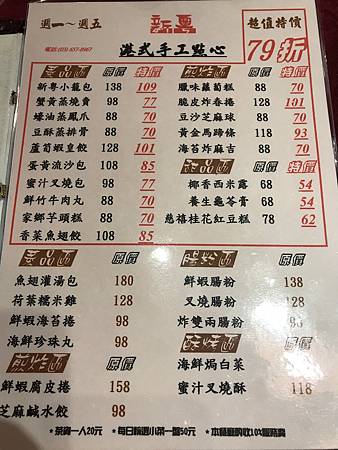 週一~週五
新粵
超值特價
港式手工點心
79折
蒸品區 原價 特價
新粵小籠包 138 109
蟹黃蒸燒賣 98 77
蠔油蒸鳳爪 88 70
豆酥蒸排骨 88 70
蘆筍蝦皇餃 128 101
蛋黃流沙包 108 85
蜜汁叉燒包 98 77
鮮竹牛肉丸 88 70
家鄉芋頭糕 88 70
香菜魚翅餃 108 85
煎炸區 原價 特價
臘味蘿蔔糕 88 70
脆皮炸春捲 128 101
豆沙芝麻球 88 70
黃金馬蹄條 118 93
海苔炸麻吉 88 70
甜品區 原價 特價
椰香西米露 68 54
養生龜苓膏 68 54
慈禧桂花紅豆糕 78 62
蒸品區 原價
魚翅灌湯包 180
荷葉糯米雞 128
鮮蝦海苔捲 98
海鮮珍珠丸 98
煎炸區 原價
鮮蝦腐皮捲 158
芝麻鹹水餃 98
腸粉區 原價
鮮蝦腸粉 138
叉燒腸粉 128
炸雙兩腸粉 98
酥烤區 原價
海鮮焗白菜 98
蜜汁叉燒酥 118
*茶資一人20元 *每日精選小菜一盤50元 *本餐廳酌收10%服務費